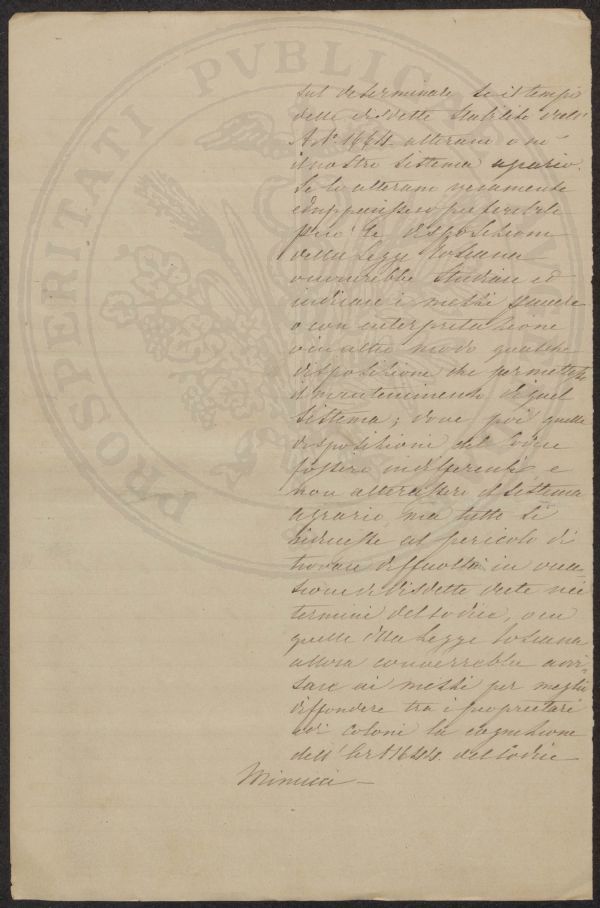 PROSPERITATI PVBLICAE
sul determinare se il tempo
delle disdette stabilito dall'
Art. 1664. alterani o no
il nostro sistema agrario.
Se lo alterani veramente
preferibile
le disposizioni
della Legge Toscana
converrebbe studiare ed
indicare i mezzi
o con interpretazione
o in altro modo qualche
disposizione che permettesse
il mantenimento di quel
sistema; dove poi quelle
disposizioni del Codice
fossero indifferenti e
non alterassero il sistema
agrario, ma tutto si
riducesse al pericolo di
trovare difficoltà in occa=
sione di disdette date nei
termini del Codice, o in
quelle della Legge Toscana
allora converrebbe avvi=
sare ai mezzi per meglio
diffondere tra i proprietari
ed i coloni la cognizione
dell' Art 1644. del Codice
Minucci —